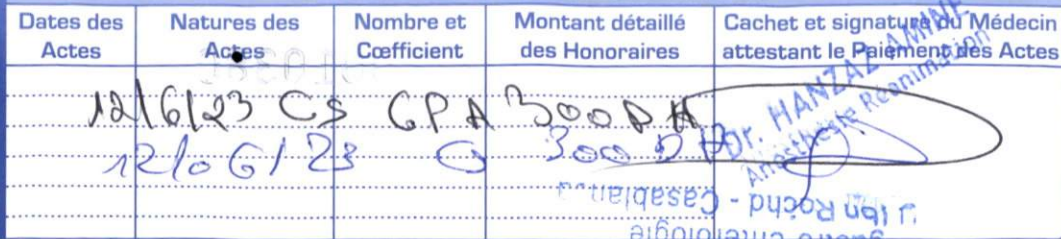 Dates des Actes | Natures des Actes | Nombre et Cœfficient | Montant détaillé des Honoraires | Cachet et signature du Médecin attestant le Paiement des Actes
Dr. HANZAZ AMINE
Anesthésie Réanimation
12/6/23 CS CPA 300 DH
12/06/23 300 DH
Ibn Rochd - Casablanca